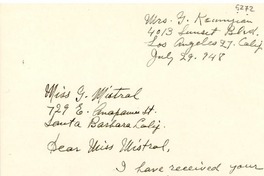 5272
Mrs. G. Keumjian
4013 Sunset Blvd.
Los Angeles 27. Calif.
July 29. 948
Miss G. Mistral
729 E. Anapamu st.
Santa Barbara Calif.
Dear Miss Mistral,
I have received your